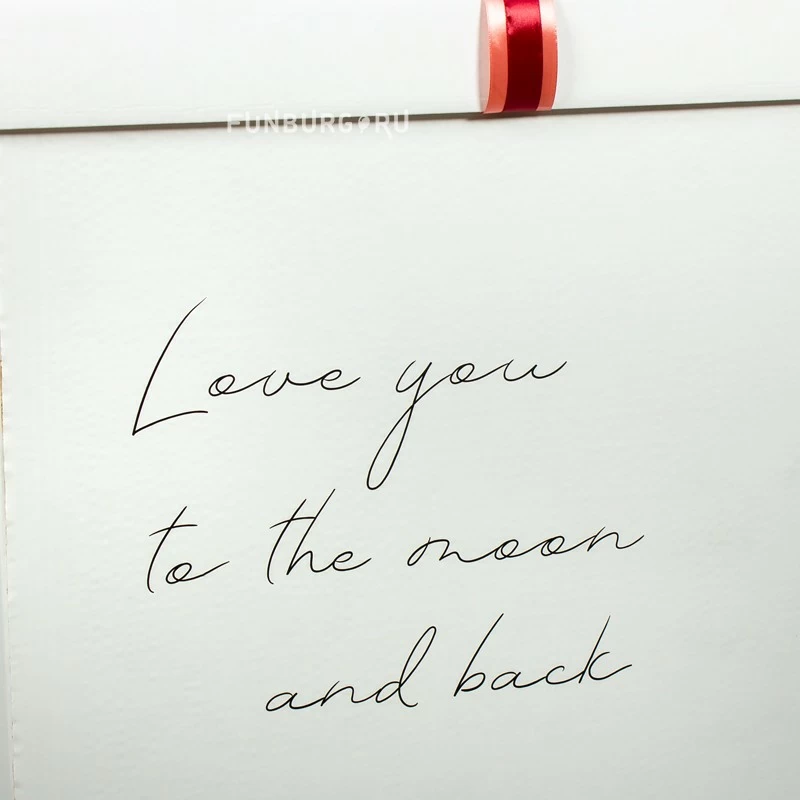 FUNBURG.RU
Love you
to the moon
and back